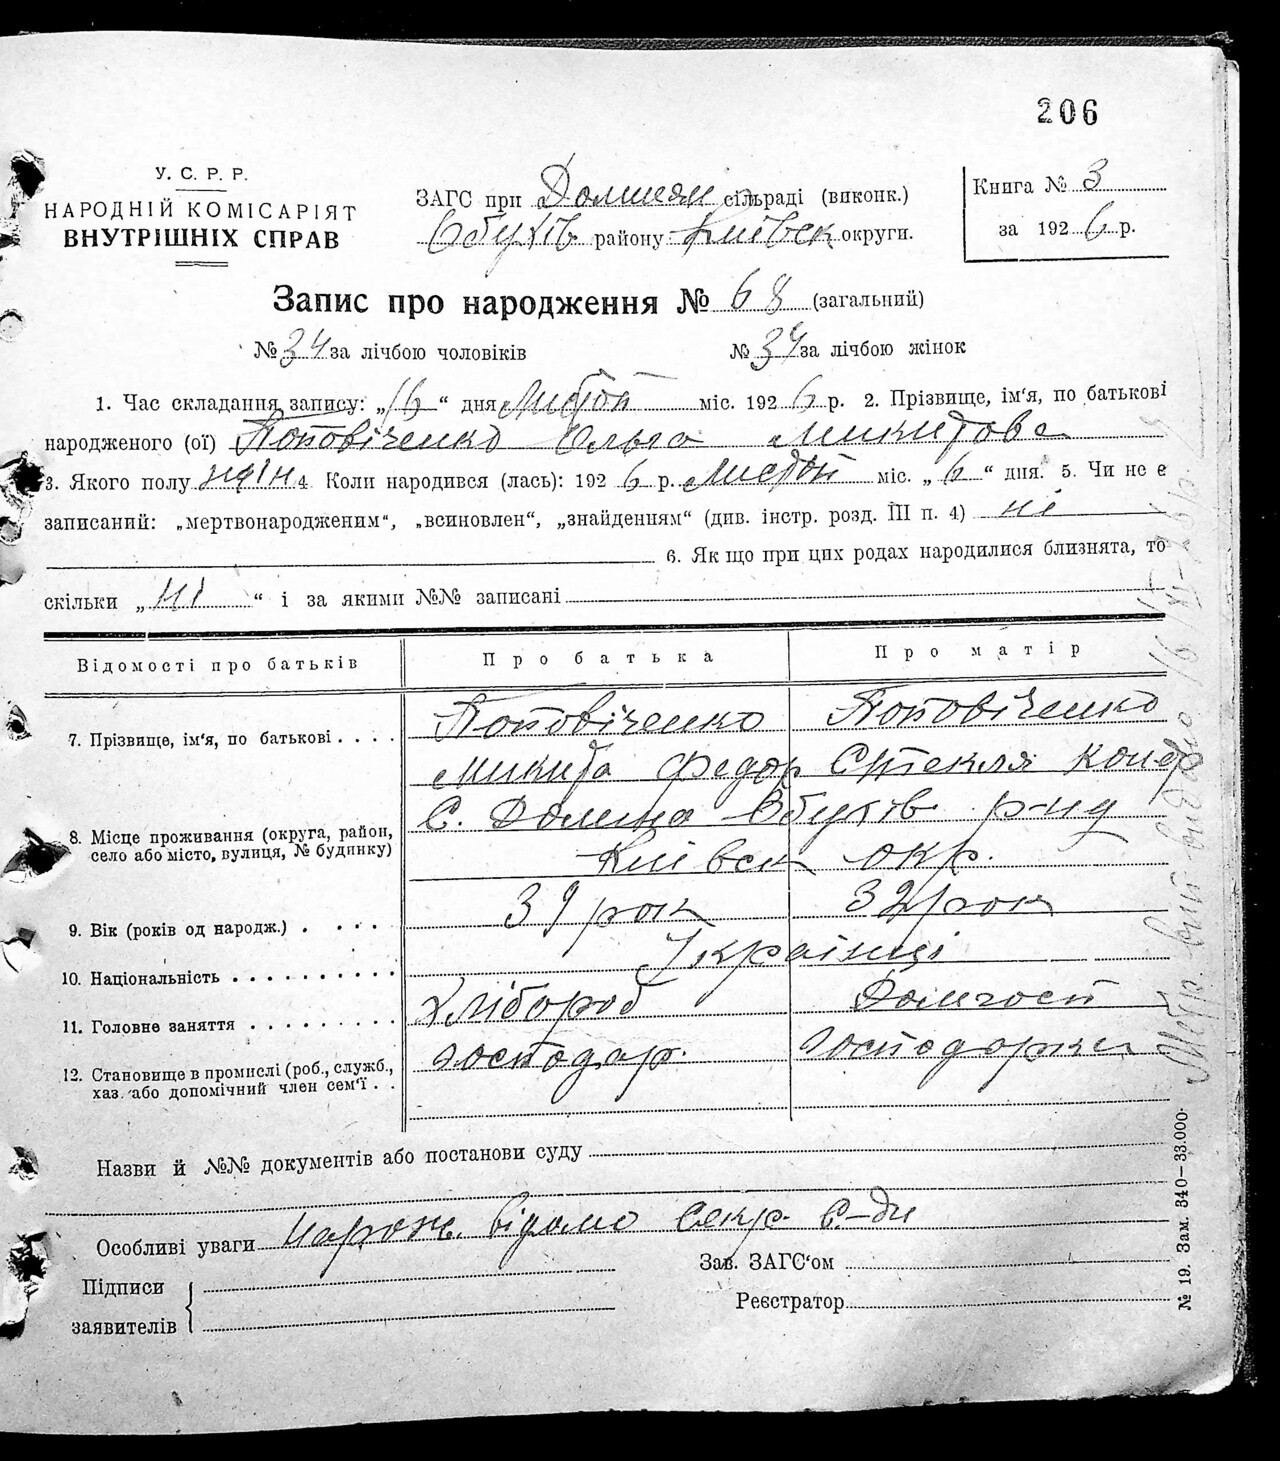 206
У. С. Р. Р.
НАРОДНІЙ КОМІСАРІЯТ
ВНУТРІШНІХ СПРАВ
ЗАГС при Долинян сільраді (виконк.)
Обухів району Київск округи.
Книга № 3
за 1926 р.
Запис про народження № 68 (загальний)
№ 34 за лічбою чоловіків № 34 за лічбою жінок
1. Час складання запису: „16“ дня Листоп міс. 1926 р. 2. Прізвище, ім'я, по батькові
народженого (ої) Поповіченко Ольга Микитова
3. Якого полу жін 4 Коли народився (лась): 1926 р. Листоп міс. „6“ дня. 5. Чи не є
записаний: „мертвонародженим“, „всиновлен“, „знайденням“ (див. інстр. розд. III п. 4) ні
6. Як що при цих родах народилися близнята, то
скільки „ні“ і за якими №№ записані
Відомості про батьків Про батька Про матір
7. Прізвище, ім'я, по батькові . . . . Поповіченко Поповіченко
Микита Федор Стекля Конд
8. Місце проживання (округа, район, село або місто, вулиця, № будинку) С. Долина Обухів р-ну
Київск окр.
9. Вік (років од народж.) . . . . 39 рок 32 рок
10. Національність . . . . . . . . . . Українці
11. Головне заняття . . . . . . . . . Хлібороб Домгосп
12. Становище в промислі (роб., служб., хаз. або допомічний член сем'ї . . господар. господарка
Назви й №№ документів або постанови суду
Особливі уваги Нарож. відомо секр. С-ди
Підписи
заявителів
Зав. ЗАГС'ом
Реєстратор
№ 19. Зам. 340—33.000.